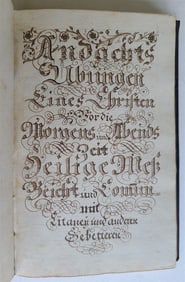 Andachts
Übungen
Eines Christen
Vor die
Morgens und Abends
Zeit
Heilige Meß
Beicht und Com̄un
mit
Litaneÿen und anderen
Gebetteren